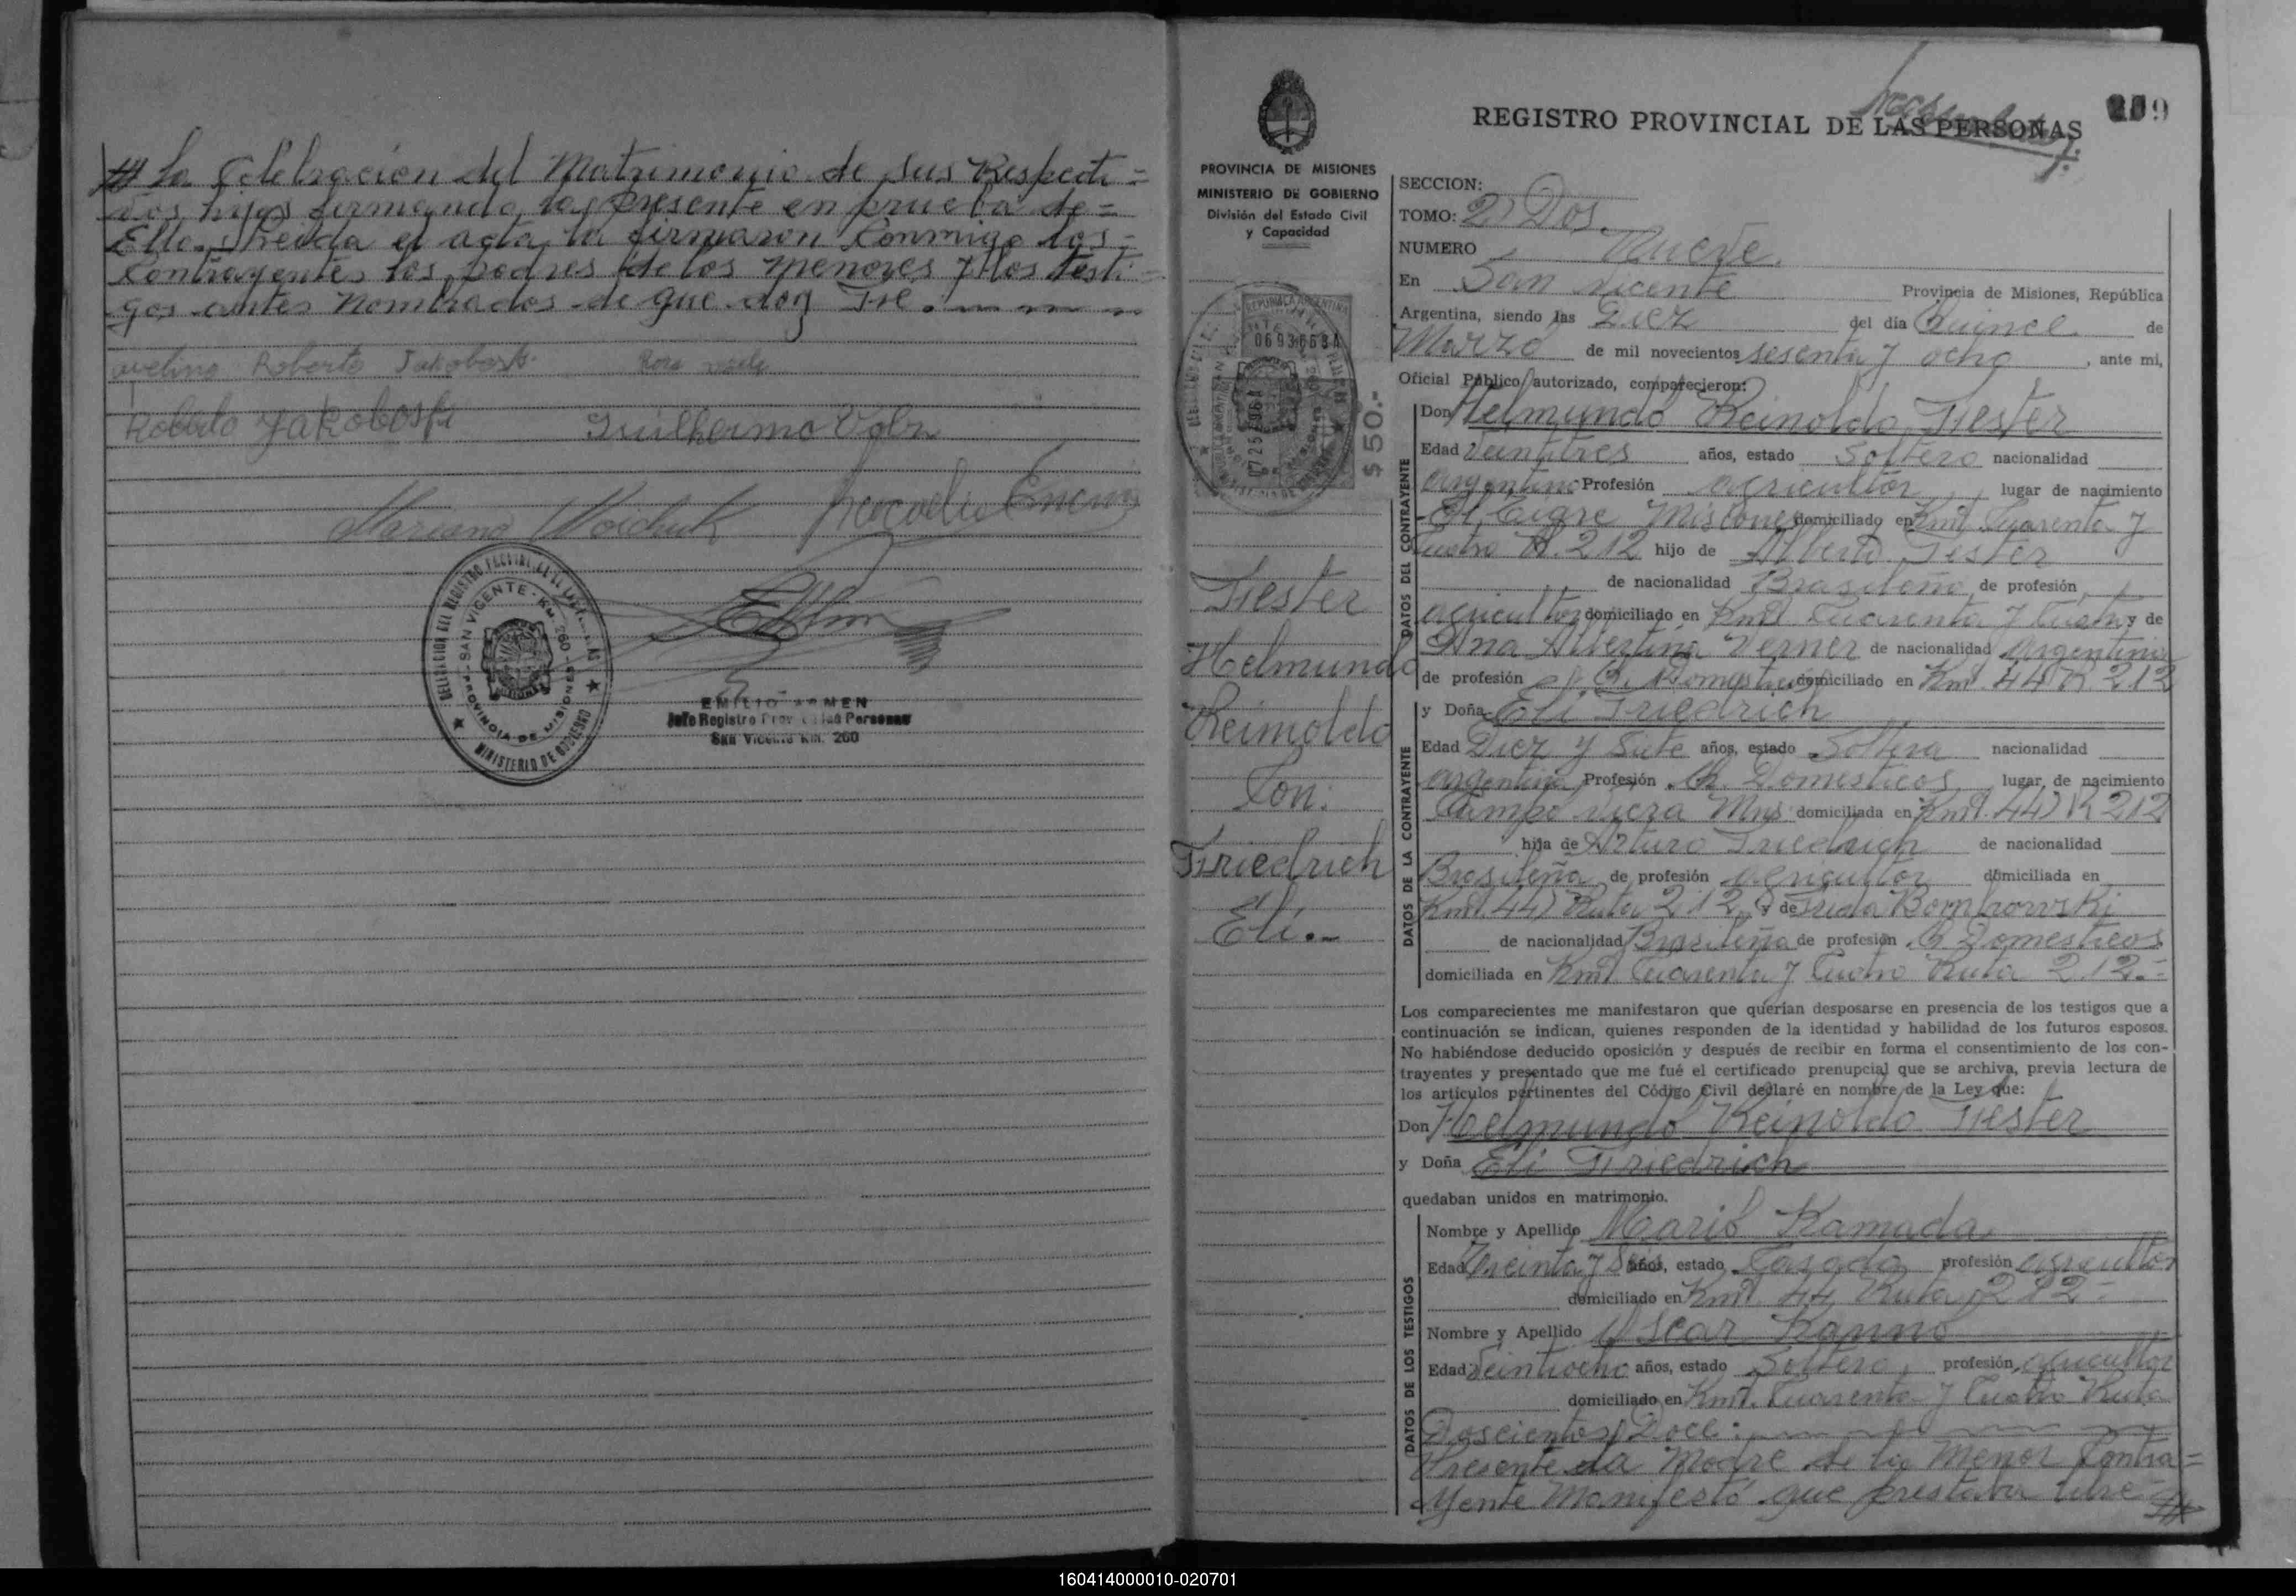 # la Celebracion del Matrimonio de sus Respecti=
vos hijos firmando la presente en prueba de=
Ello. Leida el acta, la firmaron Conmigo los=
Contrayentes los padres de los menores y los testi=
gos antes Nombrados de que doy Fé.
avelino Roberto Jakoboski
Rosa
Roberto Jakoboski
Guilhermo
Mariano Woichuk
DELEGACION DEL REGISTRO PROVINCIAL DE LAS PERSONAS
SAN VICENTE - KM. 260 - PROVINCIA DE MISIONES
MINISTERIO DE GOBIERNO
EMILIO ARMEN
Jefe Registro Prov. de las Personas
San Vicente Km. 260
PROVINCIA DE MISIONES
MINISTERIO DE GOBIERNO
División del Estado Civil
y Capacidad
$ 50.-
Fiester
Helmundo
Reinoldo
Con:
Friedrich
Eli.-
REGISTRO PROVINCIAL DE LAS PERSONAS
SECCION:
TOMO: 2) Dos.
NUMERO Nueve.
En San Vicente Provincia de Misiones, República
Argentina, siendo las Diez del día Quince de
Marzo de mil novecientos sesenta y ocho, ante mi,
Oficial Público autorizado, comparecieron:
DATOS DEL CONTRAYENTE
Don Helmundo Reinoldo Fiester
Edad Veintitres años, estado Soltero nacionalidad
argentino Profesión agricultor, lugar de nacimiento
El Tigre Misiones domiciliado en Kmt. Cuarenta y
Cuatro R. 212 hijo de Alberto Fiester
de nacionalidad Brasileño, de profesión
agricultor domiciliado en Kmt. Cuarenta y Cuatro y de
Ana Albertina Verner de nacionalidad argentina
de profesión Q. Domesticos domiciliado en Kmt. 44 R. 212
DATOS DE LA CONTRAYENTE
y Doña Eli Friedrich
Edad Diez y Siete años, estado Soltera nacionalidad
argentina Profesión Q. Domesticos lugar de nacimiento
Campo Viera Mns domiciliada en Kmt. 44) R 212
hija de Arturo Friedrich de nacionalidad
Brasileña de profesión agricultor domiciliada en
Kmt. 44) Ruta 212, y de Frida Bomkowski
de nacionalidad Brasileña de profesión Q. Domesticos
domiciliada en Kmt. Cuarenta y Cuatro Ruta 212.=
Los comparecientes me manifestaron que querían desposarse en presencia de los testigos que a
continuación se indican, quienes responden de la identidad y habilidad de los futuros esposos.
No habiéndose deducido oposición y después de recibir en forma el consentimiento de los con-
trayentes y presentado que me fué el certificado prenupcial que se archiva, previa lectura de
los artículos pertinentes del Código Civil declaré en nombre de la Ley que:
Don Helmundo Reinoldo Fiester
y Doña Eli Friedrich
quedaban unidos en matrimonio.
DATOS DE LOS TESTIGOS
Nombre y Apellido Mario Kamada
Edad Treinta y Seis años, estado Casado profesión agricultor
domiciliado en Kmt. 44, Ruta 212=
Nombre y Apellido Oscar Kanno
Edad Veintiocho años, estado Soltero, profesión agricultor
domiciliado en Kmt. Cuarenta y Cuatro Ruta
Doscientos Doce:
Presente la Madre de la Menor Contra=
yente Manifestó que prestaba libre #
160414000010-020701